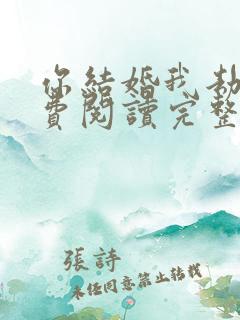 你結婚我劫
費閱讀完整
張詩
未任同意禁止轉載